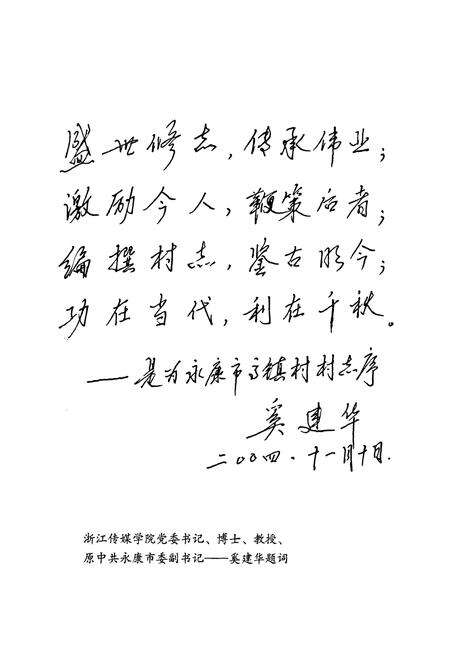 盛世修志，传承伟业；
激励今人，鞭策后者；
编撰村志，鉴古明今；
功在当代，利在千秋。
——是为永康市高镇村村志序
奚建华
二〇〇四·十一月十日.
浙江传媒学院党委书记、博士、教授、
原中共永康市委副书记——奚建华题词